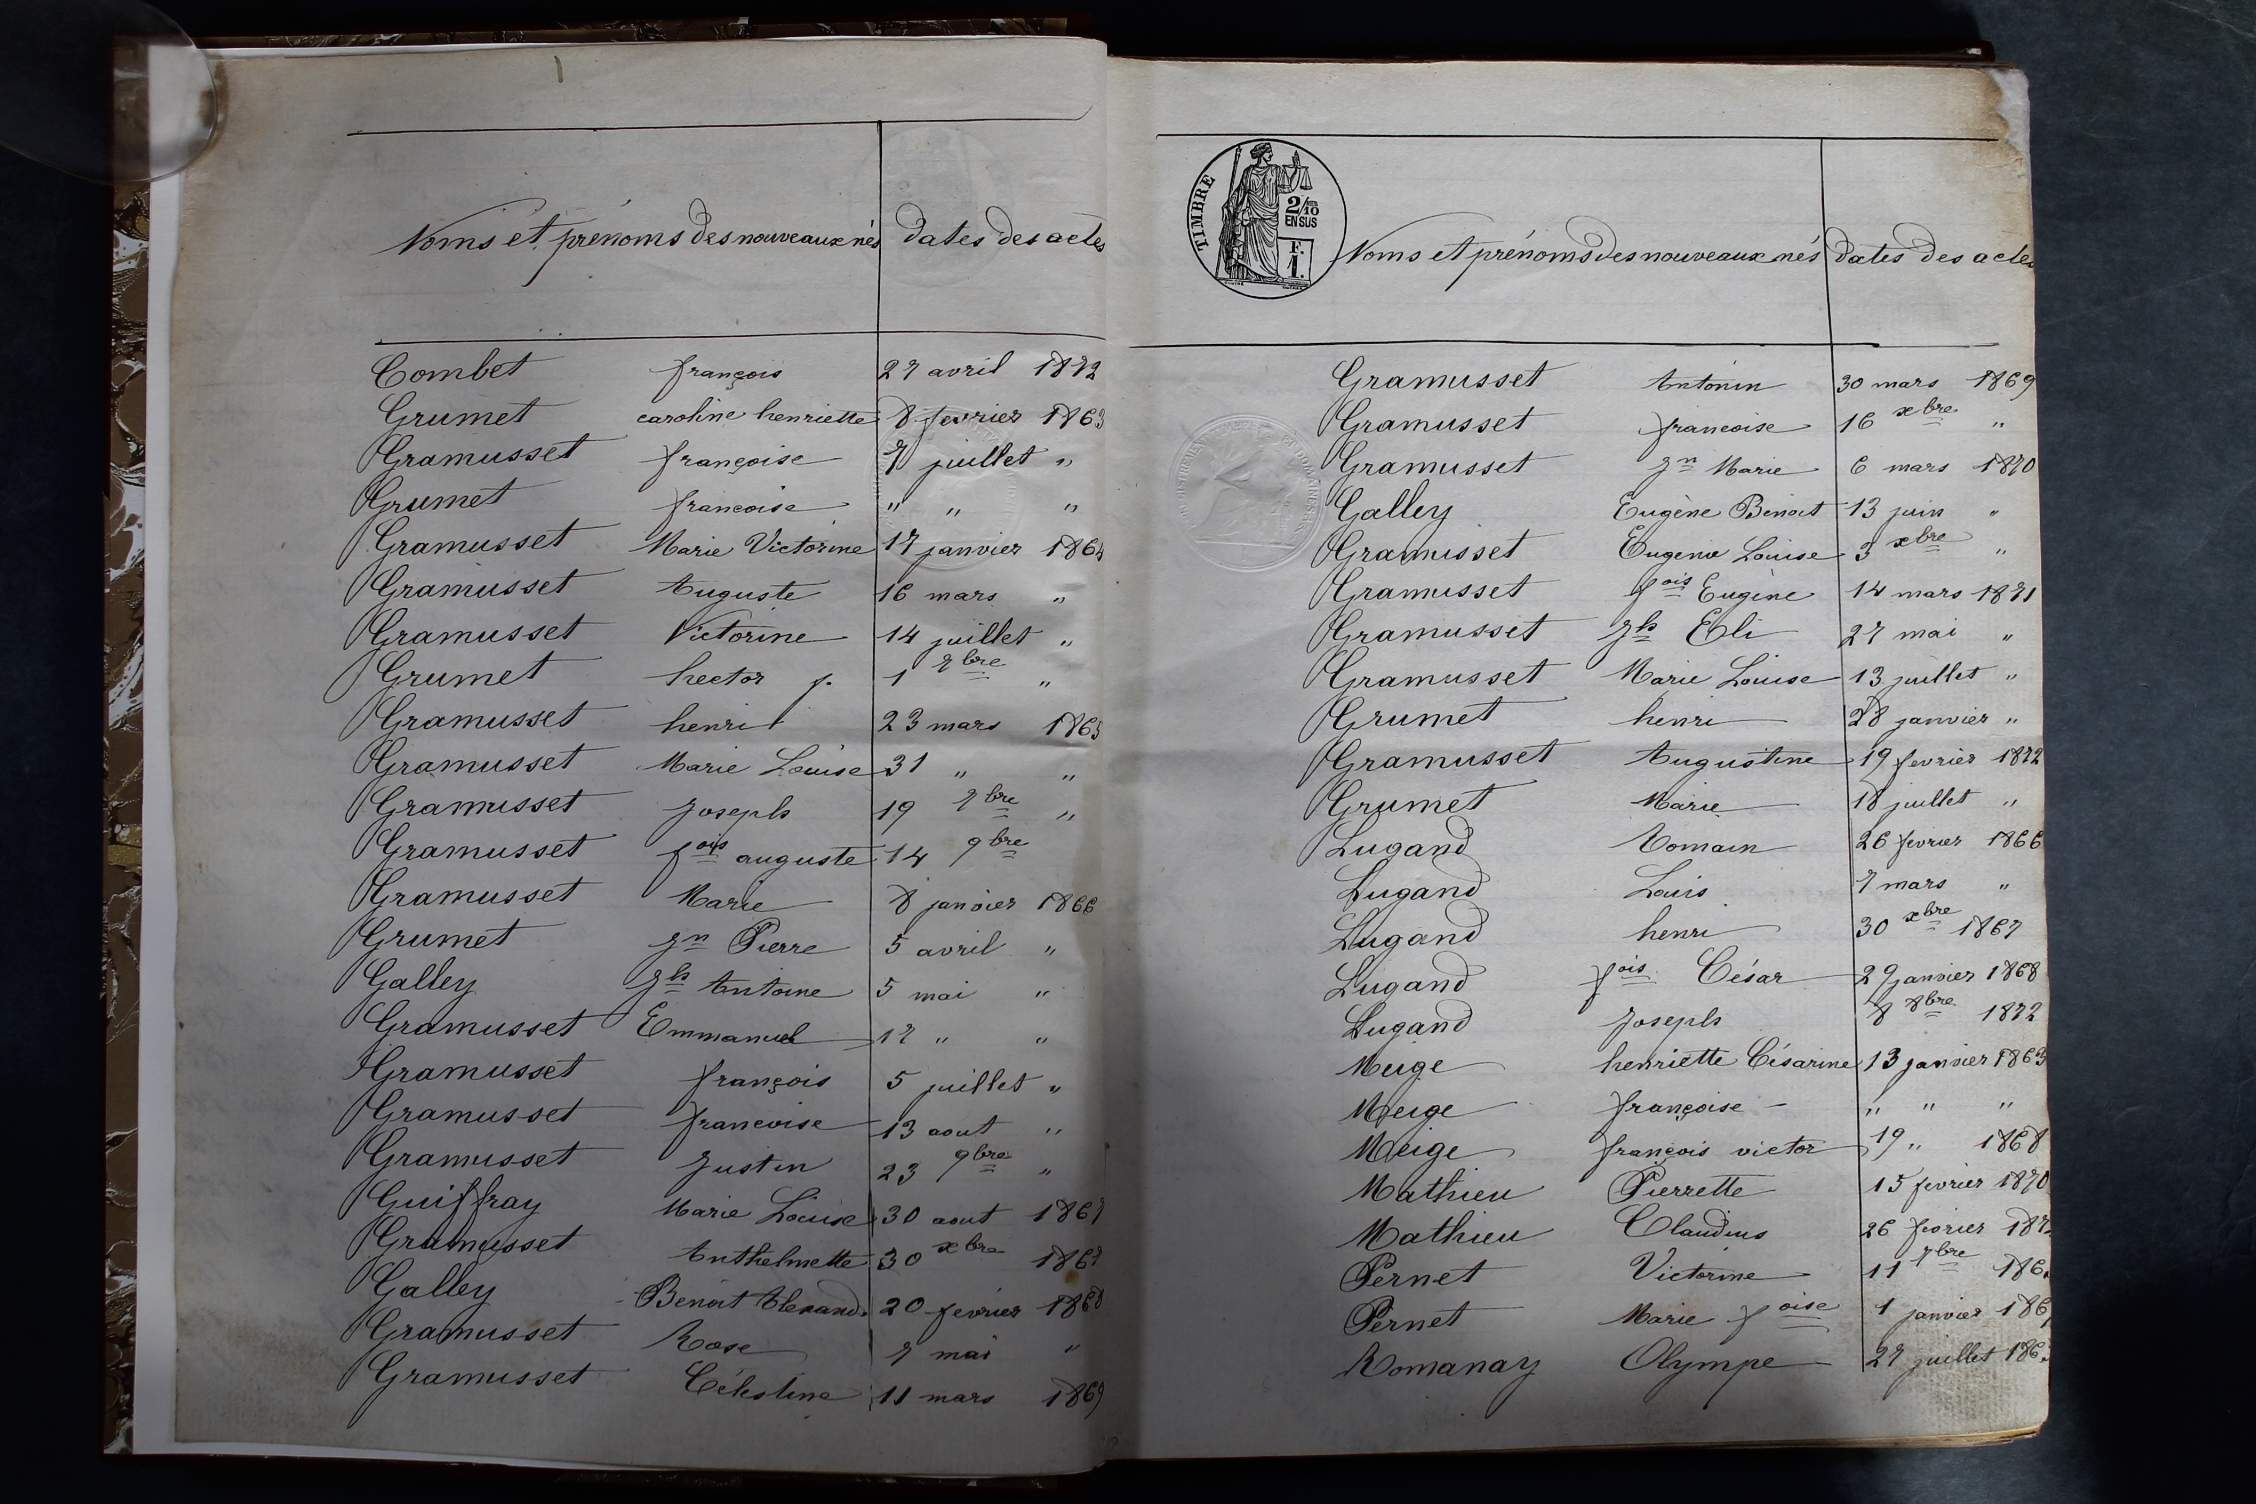 Noms et prénoms des nouveaux nés dates des actes
Combet françois 27 avril 1872
Grumet caroline henriette 8 fevrier 1863
Gramusset françoise 7 juillet "
Grumet francoise " " "
Gramusset Marie Victorine 17 janvier 1864
Gramusset Auguste 16 mars "
Gramusset Victorine 14 juillet "
Grumet hector j. 1 7bre "
Gramusset henri 23 mars 1865
Gramusset Marie Louise 31 " "
Gramusset Joseph 19 7bre "
Gramusset fois auguste 14 9bre
Gramusset Marie 8 janvier 1866
Grumet Jn Pierre 5 avril "
Galley Jh Antoine 5 mai "
Gramusset Emmanuel 12 " "
Gramusset françois 5 juillet "
Gramusset francoise 13 aout "
Gramusset Justin 23 9bre "
Guiffray Marie Louise 30 aout 1867
Gramusset Anthelmette 30 xbre 1867
Galley Benoit Alexand. 20 fevrier 1868
Gramusset Rose 7 mai "
Gramusset Célestine 11 mars 1869
TIMBRE
2/10
EN SUS
F.
1.
Noms et prénoms des nouveaux nés dates des actes
Gramusset Antonin 30 mars 1869
Gramusset francoise 16 xbre "
Gramusset Jn Marie 6 mars 1870
Galley Eugène Benoit 13 juin "
Gramusset Eugenie Louise 3 xbre "
Gramusset fois Eugène 14 mars 1871
Gramusset Jh Eli 27 mai "
Gramusset Marie Louise 13 juillet "
Grumet henri 28 janvier "
Gramusset Augustine 19 fevrier 1872
Grumet Marie 18 juillet "
Lugand Romain 26 fevrier 1866
Lugand Louis 7 mars "
Lugand henri 30 xbre 1867
Lugand fois César 29 janvier 1868
Lugand Joseph 8 8bre 1872
Meige henriette Césarine 13 janvier 1863
Meige françoise " " "
Meige françois victor 19 " 1868
Mathieu Pierrette 15 fevrier 1870
Mathieu Claudius 26 fevrier
Pernet Victorine 11 7bre
Pernet Marie foise 1 janvier
Romanay Olympe 27 juillet